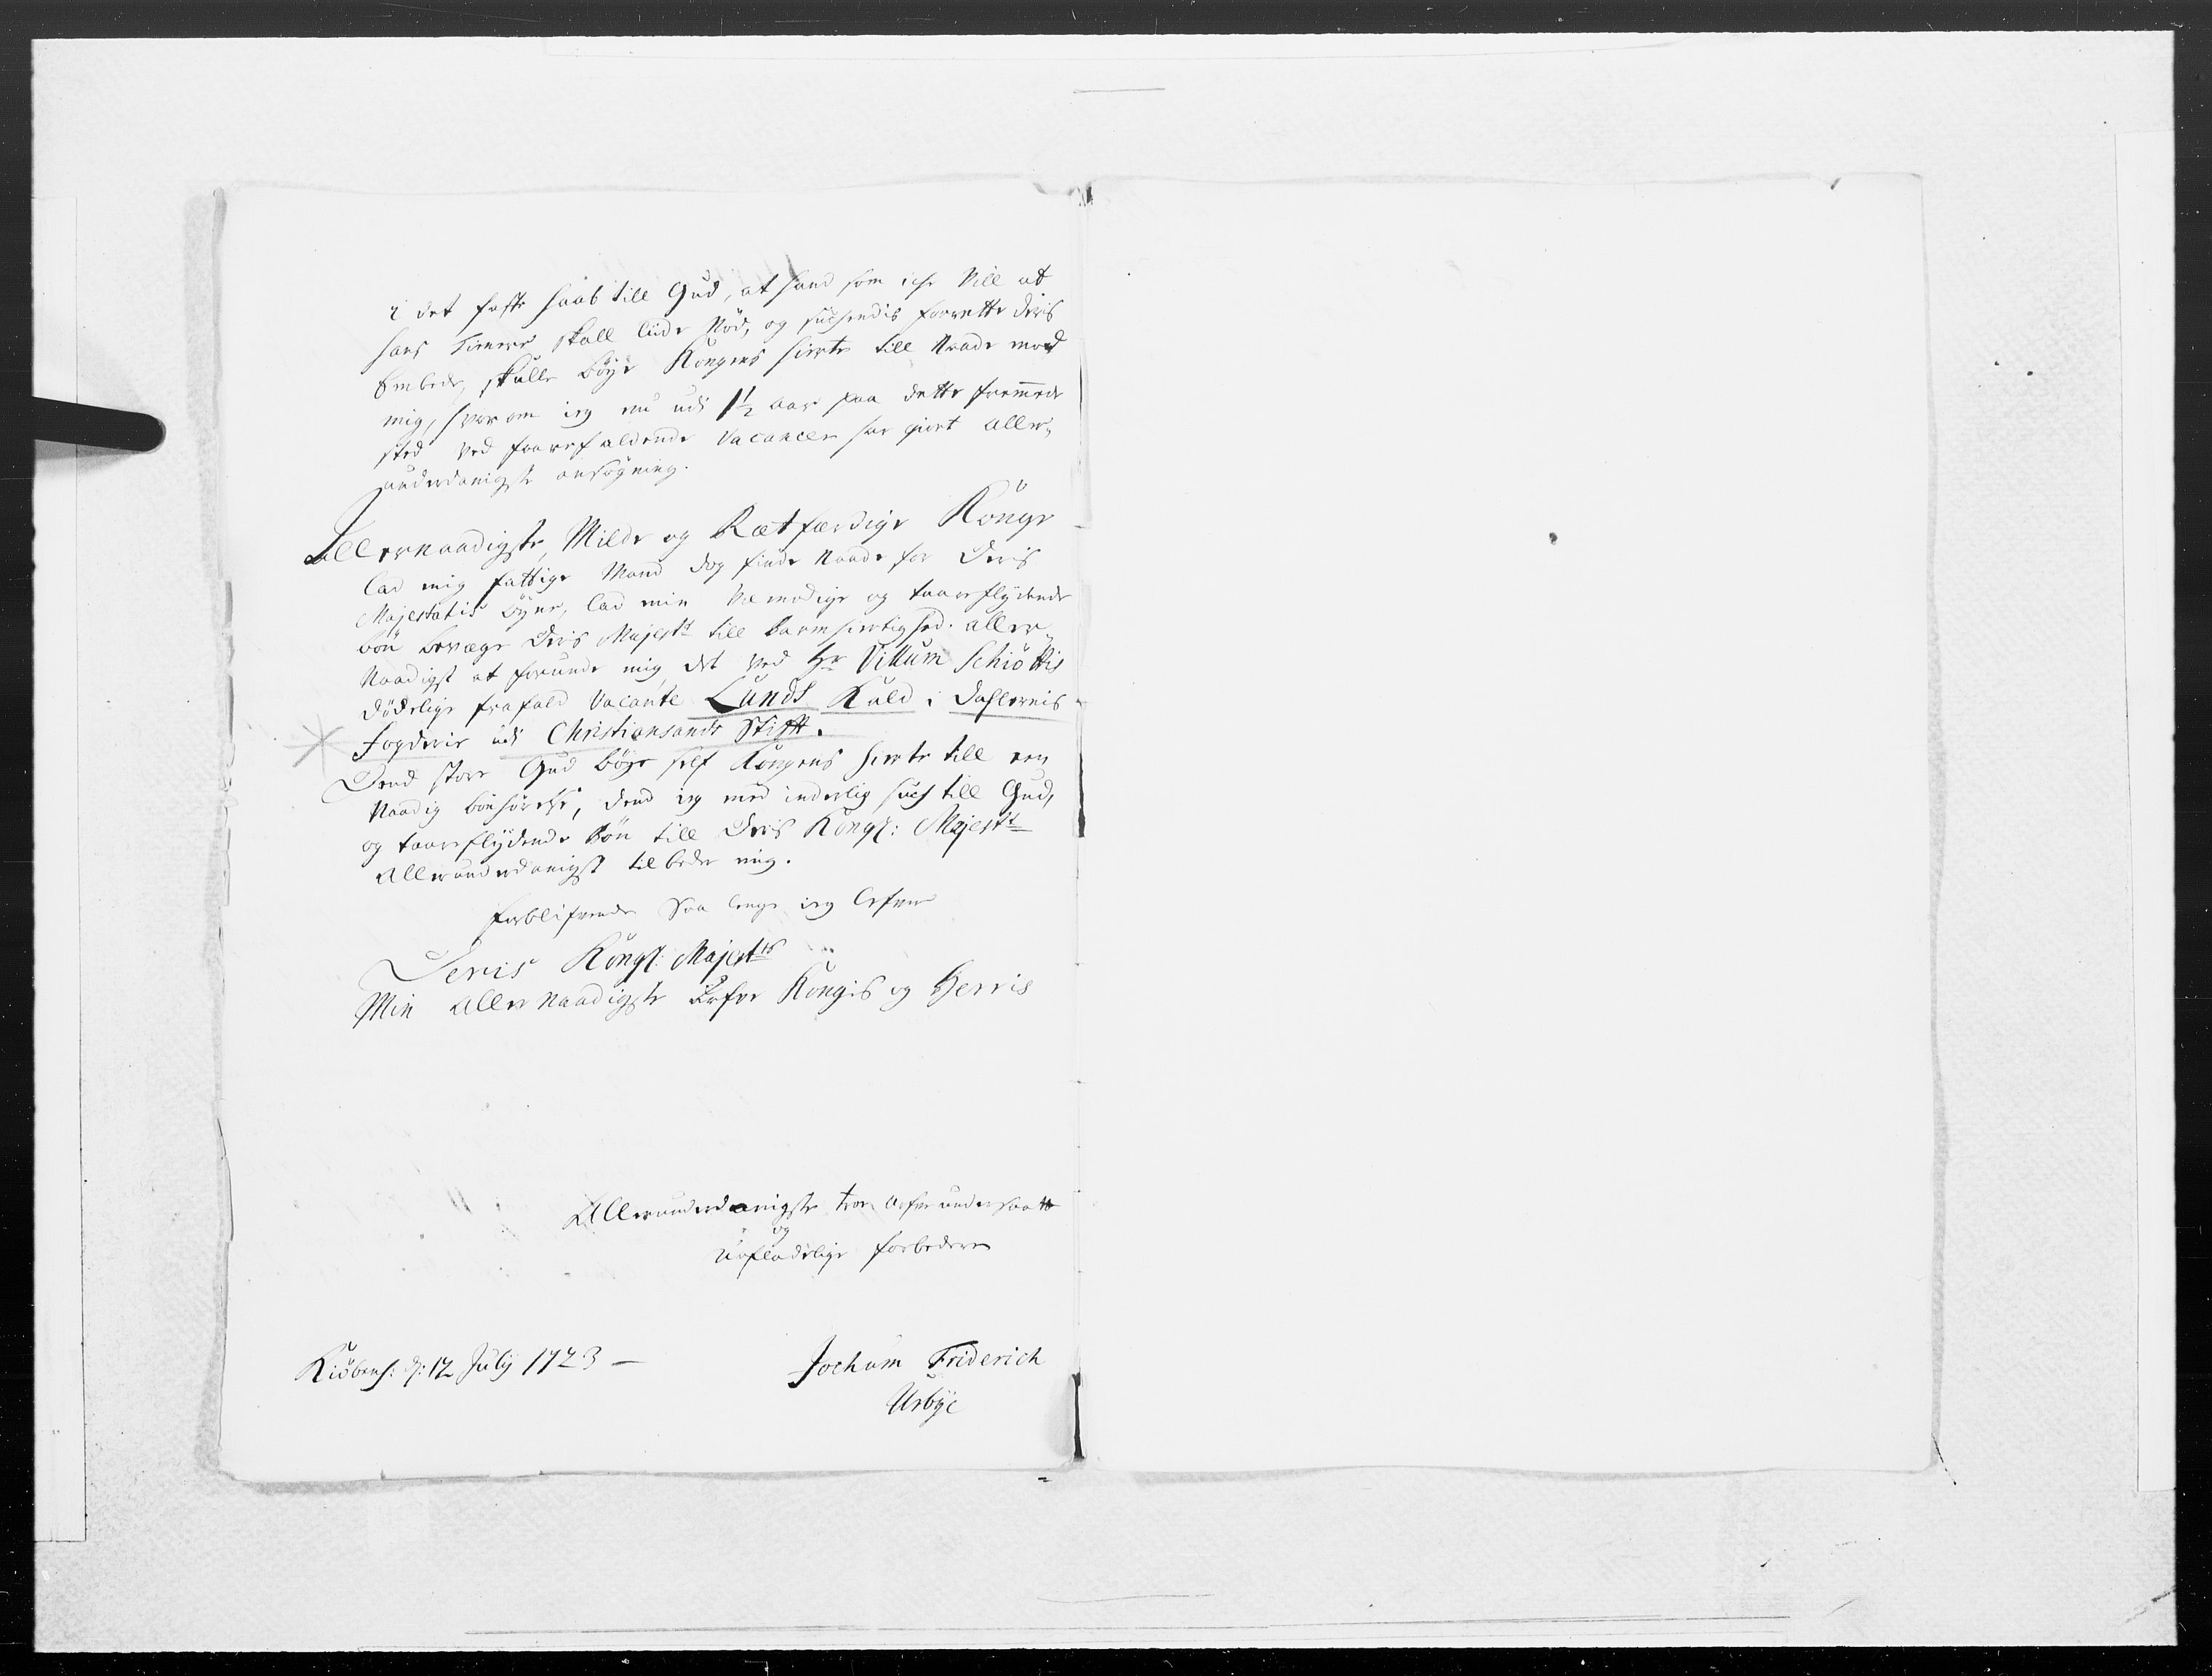 i det faste haab till Gud, at hand som iche Vill at
hans tienere skall liide Nöd, og suchendis forrette deris
Embede, skulle böye Kongens hierte till Naade mod
mig, hvor om ieg nu udi 1½ aar paa dette fremmede
sted ved foorefaldende Vacancer har giort aller,
underdanigste ansögning.
Allernaadigste, Milde og Rætfærdige Konge
lad mig fattige Mand dog finde Naade for Deris
Majestætis öyne, lad min Vemodige og taareflydende
bön bevæge Deris Majestt till barmhiertighed. aller-
Naadigst at forunde mig det ved Hr Villum Schiöttis
dödelige frafald Vacante Lunds Kald i Dahlernis
Fogderie udi Christiansands Stifft.
Dend store Gud böye self Kongens hierte till een
Naadig bönhörelse, dend ieg med inderlig such till Gud,
og taareflydende bön till Deris Kongl: Majestt
Allerunderdanigst tilbeder mig.
forblifvende Saa lenge ieg lefver
Deris Kongl: Majestts
Min Aller Naadigste Arfve Kongis og Herris
Allerunderdanigste troe Arfve undersaatt
og
Uafladelige forbedere
Kiöbenh: d: 12 July 1723 –
Jochum Friderich
Urbye